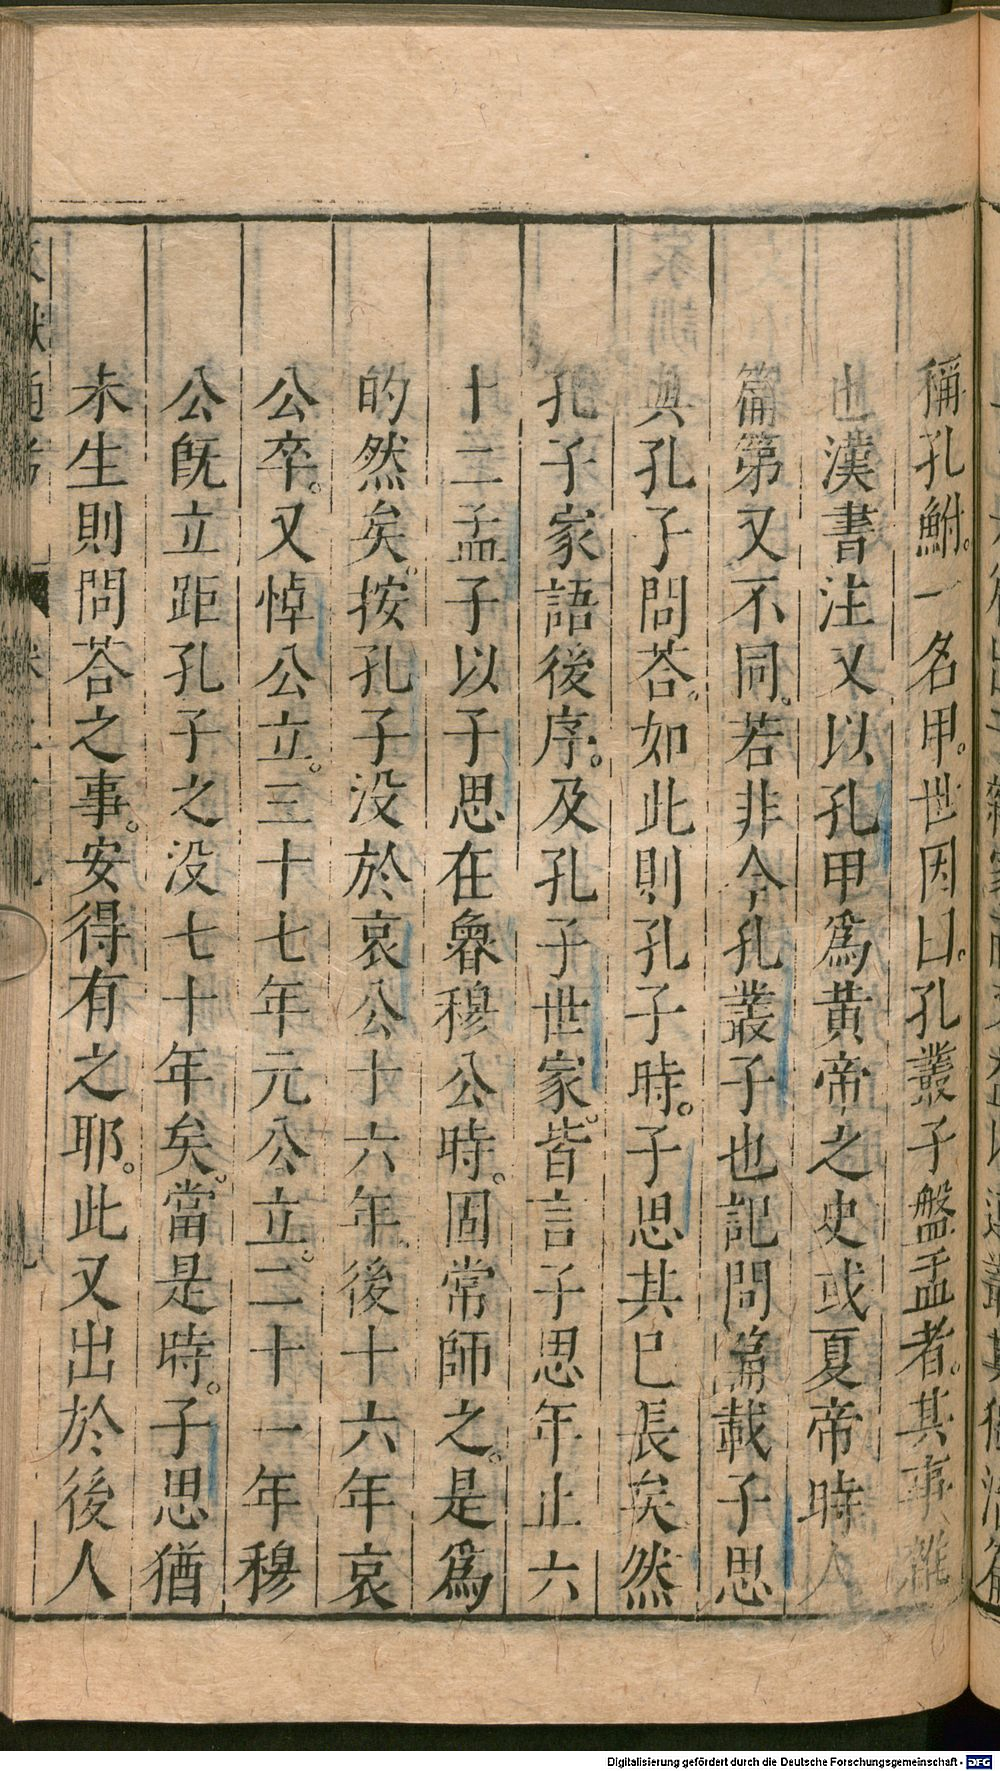 稱孔鮒。一名甲。世因曰。孔叢子盤盂者。其事雜
也漢書注又以孔甲爲黃帝之史或夏帝時人
篇第又不同。若非今孔叢子也記問篇載子思
與孔子問荅。如此則孔子時。子思其已長矣然
孔子家語後序。及孔子世家。皆言子思年止六
十二孟子以子思在魯穆公時。固常師之。是爲
的然矣。按孔子没於哀公十六年後十六年哀
公卒。又悼公立。三十七年元公立。二十一年穆
公旣立距孔子之没七十年矣。當是時。子思猶
未生則問荅之事。安得有之耶。此又出於後人
Digitalisierung gefördert durch die Deutsche Forschungsgemeinschaft - DFG